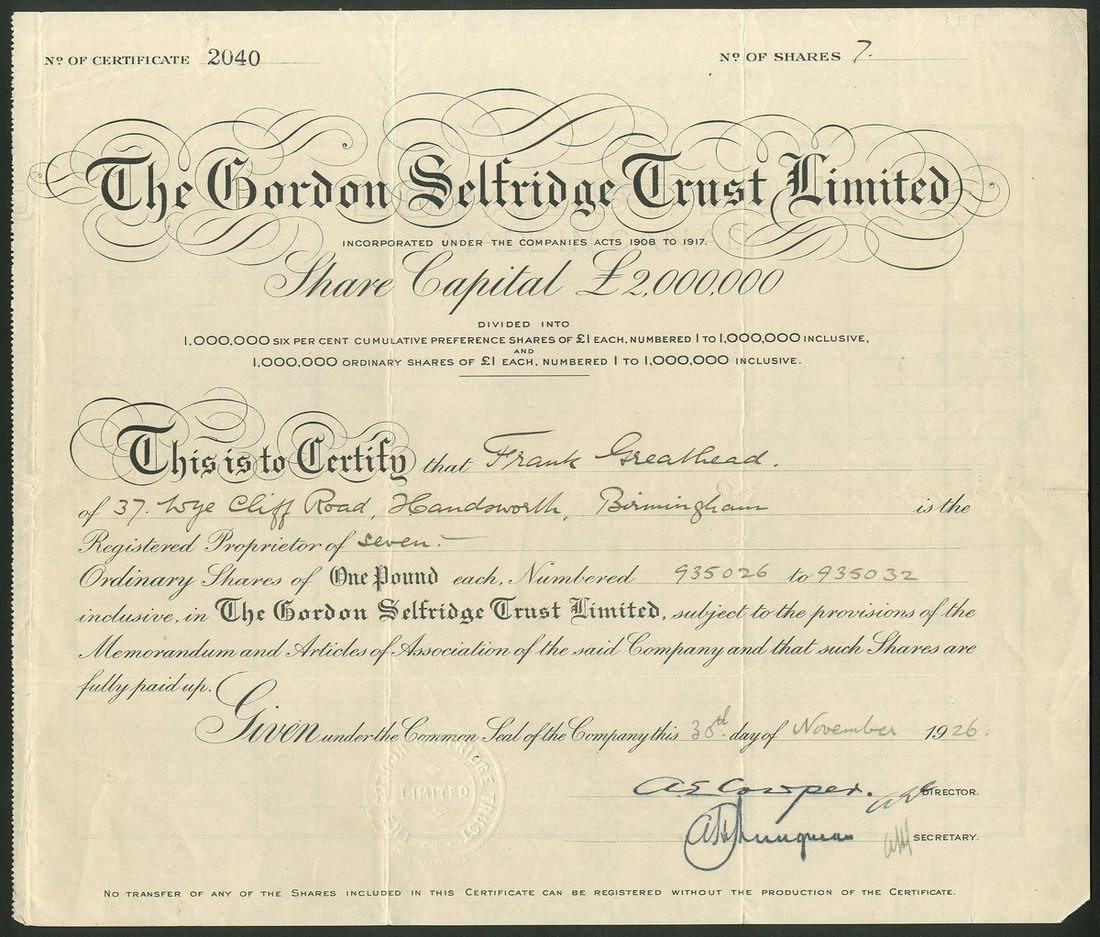 Nº OF CERTIFICATE 2040
Nº OF SHARES 7.
The Gordon Selfridge Trust Limited
INCORPORATED UNDER THE COMPANIES ACTS 1908 TO 1917.
Share Capital £2,000,000
DIVIDED INTO
1,000,000 SIX PER CENT CUMULATIVE PREFERENCE SHARES OF £1 EACH, NUMBERED 1 TO 1,000,000 INCLUSIVE,
AND
1,000,000 ORDINARY SHARES OF £1 EACH, NUMBERED 1 TO 1,000,000 INCLUSIVE.
This is to Certify that Frank Greathead.
of 37. Wye Cliff Road, Handsworth, Birmingham is the
Registered Proprietor of seven.—
Ordinary Shares of One Pound each, Numbered 935026 to 935032
inclusive, in The Gordon Selfridge Trust Limited, subject to the provisions of the
Memorandum and Articles of Association of the said Company and that such Shares are
fully paid up.
Given under the Common Seal of the Company this 30th. day of November 1926.
THE GORDON SELFRIDGE TRUST
LIMITED
A E Cowper. DIRECTOR.
SECRETARY.
NO TRANSFER OF ANY OF THE SHARES INCLUDED IN THIS CERTIFICATE CAN BE REGISTERED WITHOUT THE PRODUCTION OF THE CERTIFICATE.